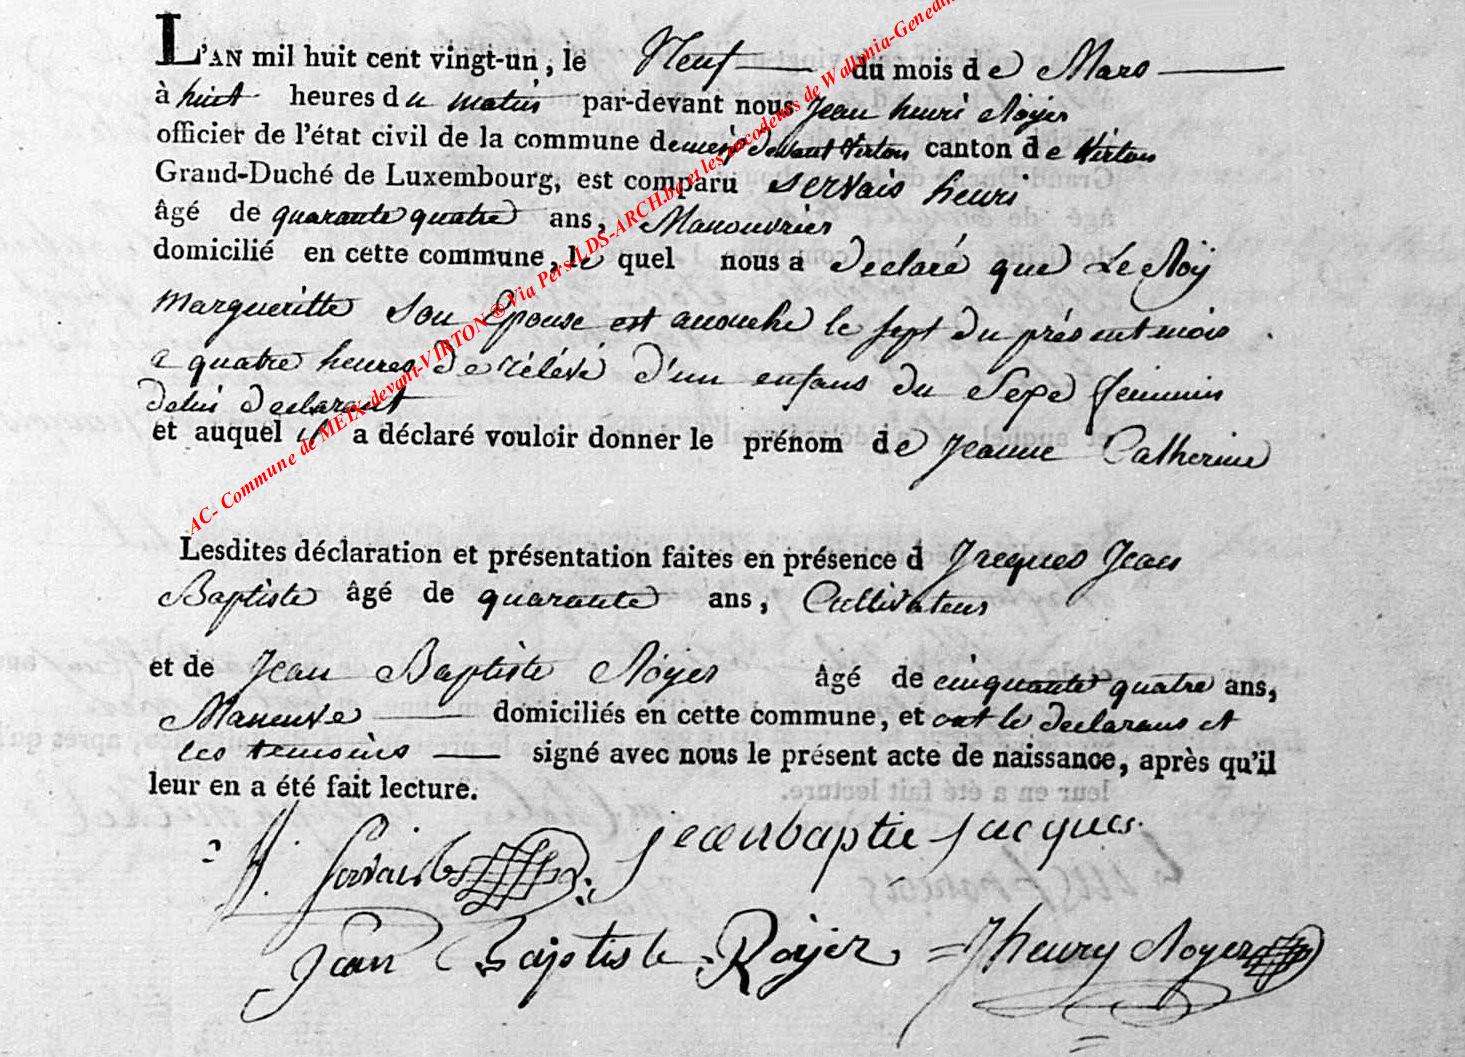 L'AN mil huit cent vingt-un, le Neuf du mois de Mars
à huit heures du matin par-devant nous Jean henri Royer
officier de l'état civil de la commune de meix devant Virton canton de Virton
Grand-Duché de Luxembourg, est comparu Servais henri
âgé de quarante quatre ans, Manouvrier
domicilié en cette commune, le quel nous a declaré que Le Roÿ
Margueritte Son Epouse est acouché le sept du présent mois
a quatre heures de rélévé d'un enfans du Sexe feminin
delui declarant
et auquel il a déclaré vouloir donner le prénom de Jeanne Catherine
Lesdites déclaration et présentation faites en présence d Jacques Jean
Baptiste âgé de quarante ans, Cultivateur
et de Jean Baptiste Royer âgé de cinquante quatre ans,
Maneuvre domiciliés en cette commune, et ont le declarans et
les temoins signé avec nous le présent acte de naissance, après qu'il
leur en a été fait lecture.
H. Servais
jean baptie jacques
Jean Baptiste Royer
J henry Royer
AC- Commune de MEIX-devant-VIRTON ® Via Pers/LDS-ARCH.be et les encodeurs de Wallonia-Genedi